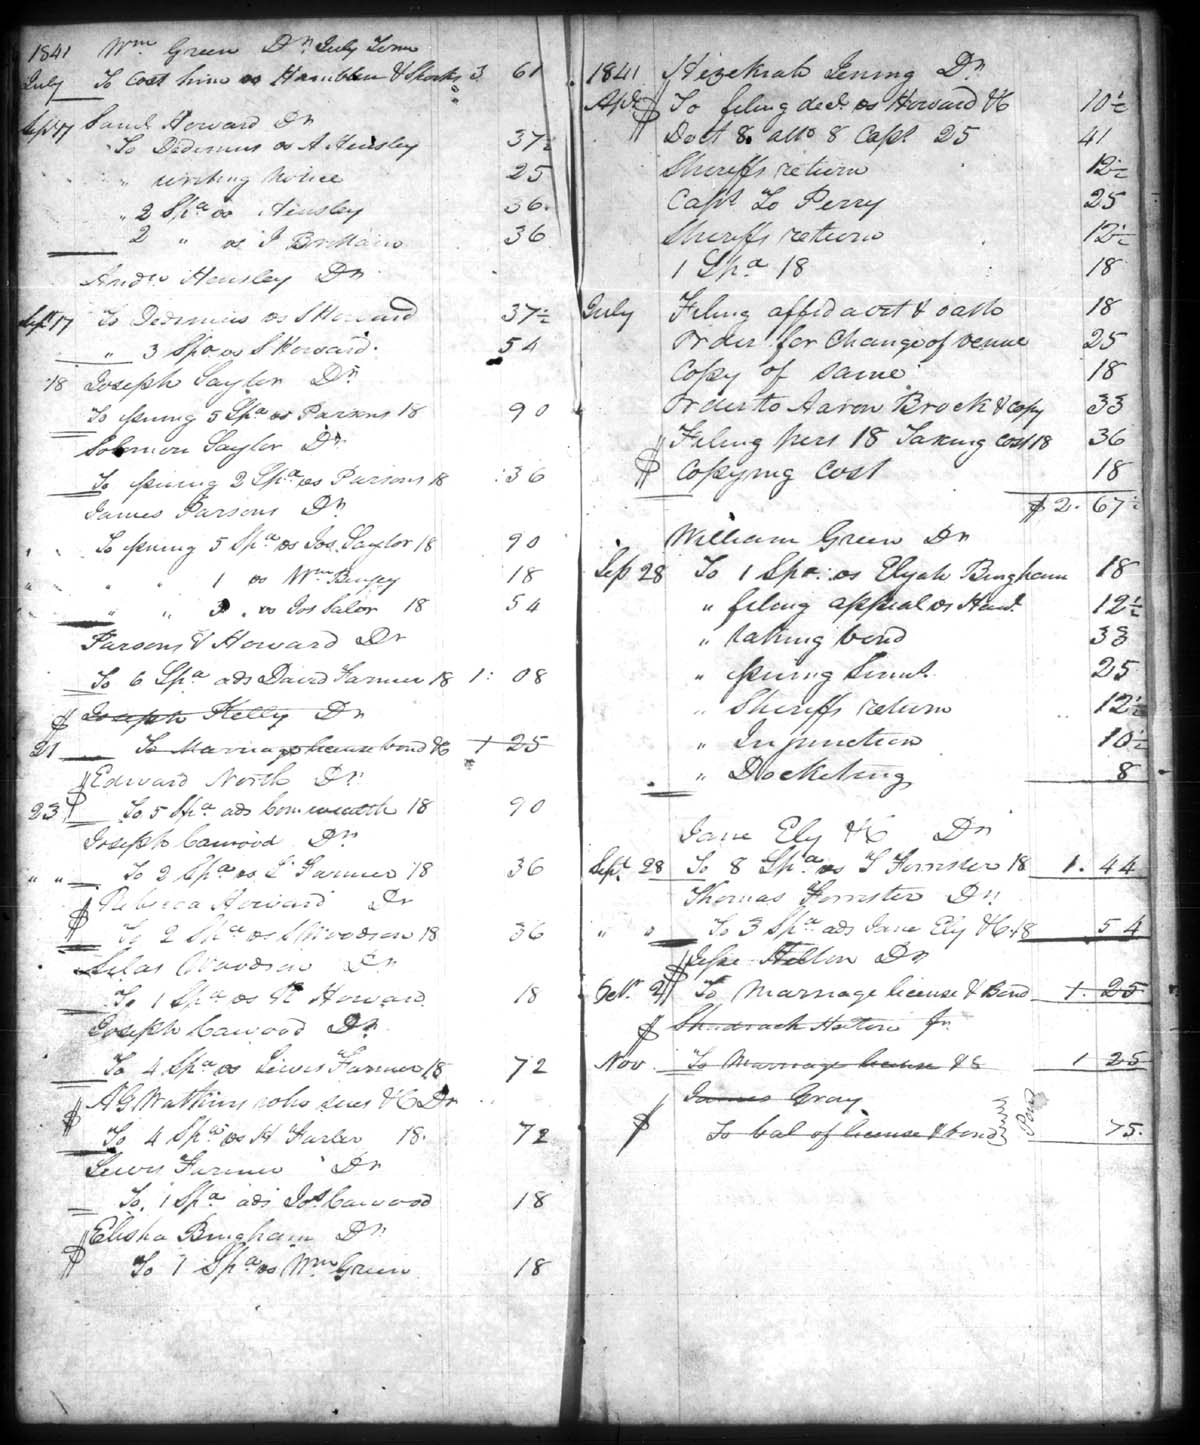 1841 Wm Green Dr July Term
July To Cost him vs Hamblen & Shorts 3 61
Sept 17 Saml Howard Dr
To Dedimus vs A Hensley 37½
" writing Notice 25
" 2 Spa vs Hensley 36
2 " vs J Brittain 36
Andw Hensley Dr
Sept 17 To Dedimus vs S Howard 37½
" 3 Spa vs S Howard 54
18 Joseph Saylor Dr
To issuing 5 Spa vs Parsons 18 90
Solomon Saylor Dr
To issuing 2 Spa vs Parsons 18 36
James Parsons Dr
" To issuing 5 Spa vs Jos. Saylor 18 90
" " " 1 vs Wm 18
" " 3 " vs Jos Salor 18 54
Parsons & Howard Dr
To 6 Spa ads David Farmer 18 1: 08
$ Joseph Kelly Dr
21 To Marriage license bond &C 1 25
$ Edward North Dr
23 To 5 Spa ads Comwealth 18 90
Joseph Cawood Dr
" " To 2 Spa vs L Farmer 18 36
$ Rebeca Howard Dr
To 2 Spa vs S Woodson 18 36
Silas Woodson Dr
To 1 Spa vs R Howard 18
Joseph Cawood Dr
To 4 Spa vs Lewis Farmer 18 72
$ AG Watkins who sues &C Dr
To 4 Spa vs H Farler 18. 72
Lewis Farmer Dr
To 1 Spa ads Jos Cawood 18
$ Elisha Bingham Dr
To 1 Spa vs Wm Green 18
1841 Hezekiah Jening Dr
Apl $ To filing decl. vs Howard &C 10½
Doct 8. atto 8 Caps 25 41
Sheriffs return 12½
Caps To Perry 25
Sheriffs return 12½
1 Spa 18 18
July Filing affidavit & oath 18
Order for Change of venue 25
Copy of same 18
Order to Aaron Brock & copy 33
Filing pers 18 Taking cost 18 36
$ Copying Cost 18
$ 2. 67½
William Green Dr
Sep 28 To 1 Spa vs Elijah Bingham 18
" filing appeal vs 12½
" taking bond 33
" issuing 25
" Sheriffs return 12½
" Injunction 10½
" Docketing 8
Jane Ely &C Dr
Sept. 28 To 8 Spa vs T Forrester 18 1. 44
Thomas Forrester Dr
" " To 3 Spa ads Jane Ely &C 18 54
$ Jesse Helton Dr
Oct. 2 To Marriage license & Bond 1. 25
$ Shadrach Helton Jr.
Nov To Marriage license &C 1 25
James Gray
$ To bal of license & bond Paid 75.